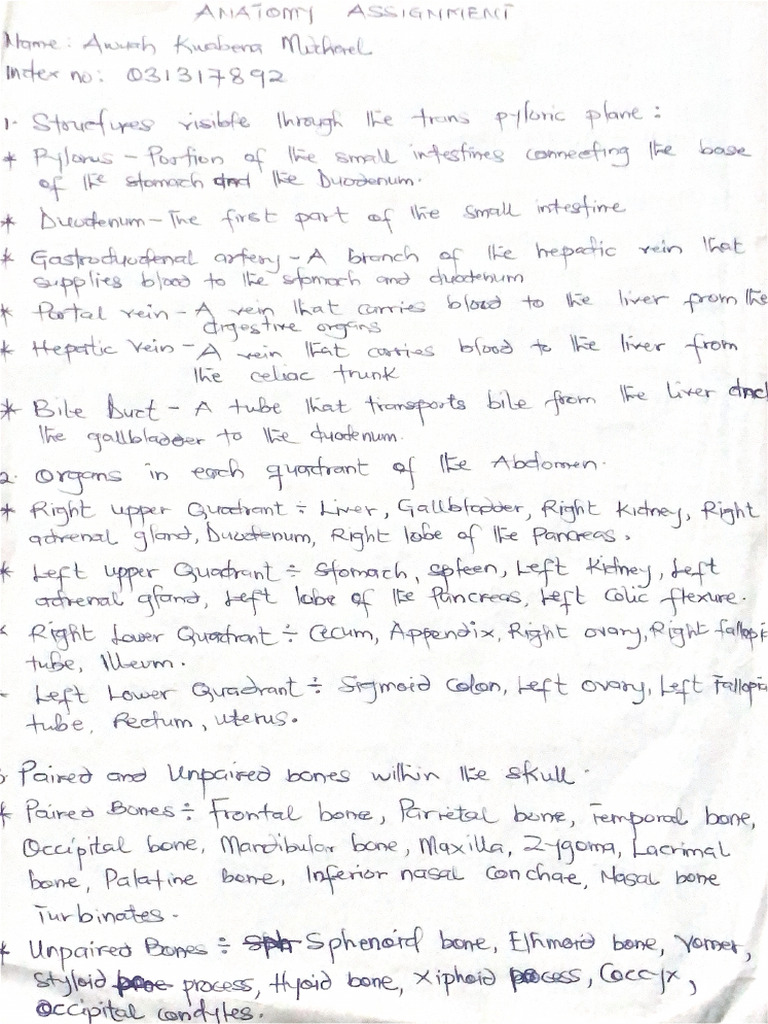 ANATOMY ASSIGNMENT
Name: Awuah Kwabena Michael
Index no: 031317892
1. Structures visible through the trans pyloric plane:
* Pylorus - Portion of the small intestines connecting the base
of the stomach and the Duodenum.
* Duodenum - The first part of the small intestine
* Gastroduodenal artery - A branch of the hepatic vein that
supplies blood to the stomach and duodenum
* Portal vein - A vein that carries blood to the liver from the
digestive organs
* Hepatic vein - A vein that carries blood to the liver from
the celiac trunk
* Bile Duct - A tube that transports bile from the liver and
the gallbladder to the duodenum.
2. Organs in each quadrant of the Abdomen.
* Right upper Quadrant ÷ Liver, Gallbladder, Right Kidney, Right
adrenal gland, Duodenum, Right lobe of the Pancreas.
* Left upper Quadrant ÷ Stomach, spleen, Left Kidney, Left
adrenal gland, Left lobe of the Pancreas, Left Colic flexure.
* Right Lower Quadrant ÷ Cecum, Appendix, Right ovary, Right fallopi
tube, Illeum.
- Left Lower Quadrant ÷ Sigmoid Colon, Left Ovary, Left Fallopia
tube, Rectum, uterus.
Paired and Unpaired bones within the skull.
* Paired Bones ÷ Frontal bone, Parietal bone, Temporal bone,
Occipital bone, Mandibular bone, Maxilla, Zygoma, Lacrimal
bone, Palatine bone, Inferior nasal conchae, Nasal bone
Turbinates.
* Unpaired Bones ÷ Sphenoid bone, Ethmoid bone, Vomer,
Styloid process, Hyoid bone, Xiphoid process, Coccyx,
Occipital condyles.